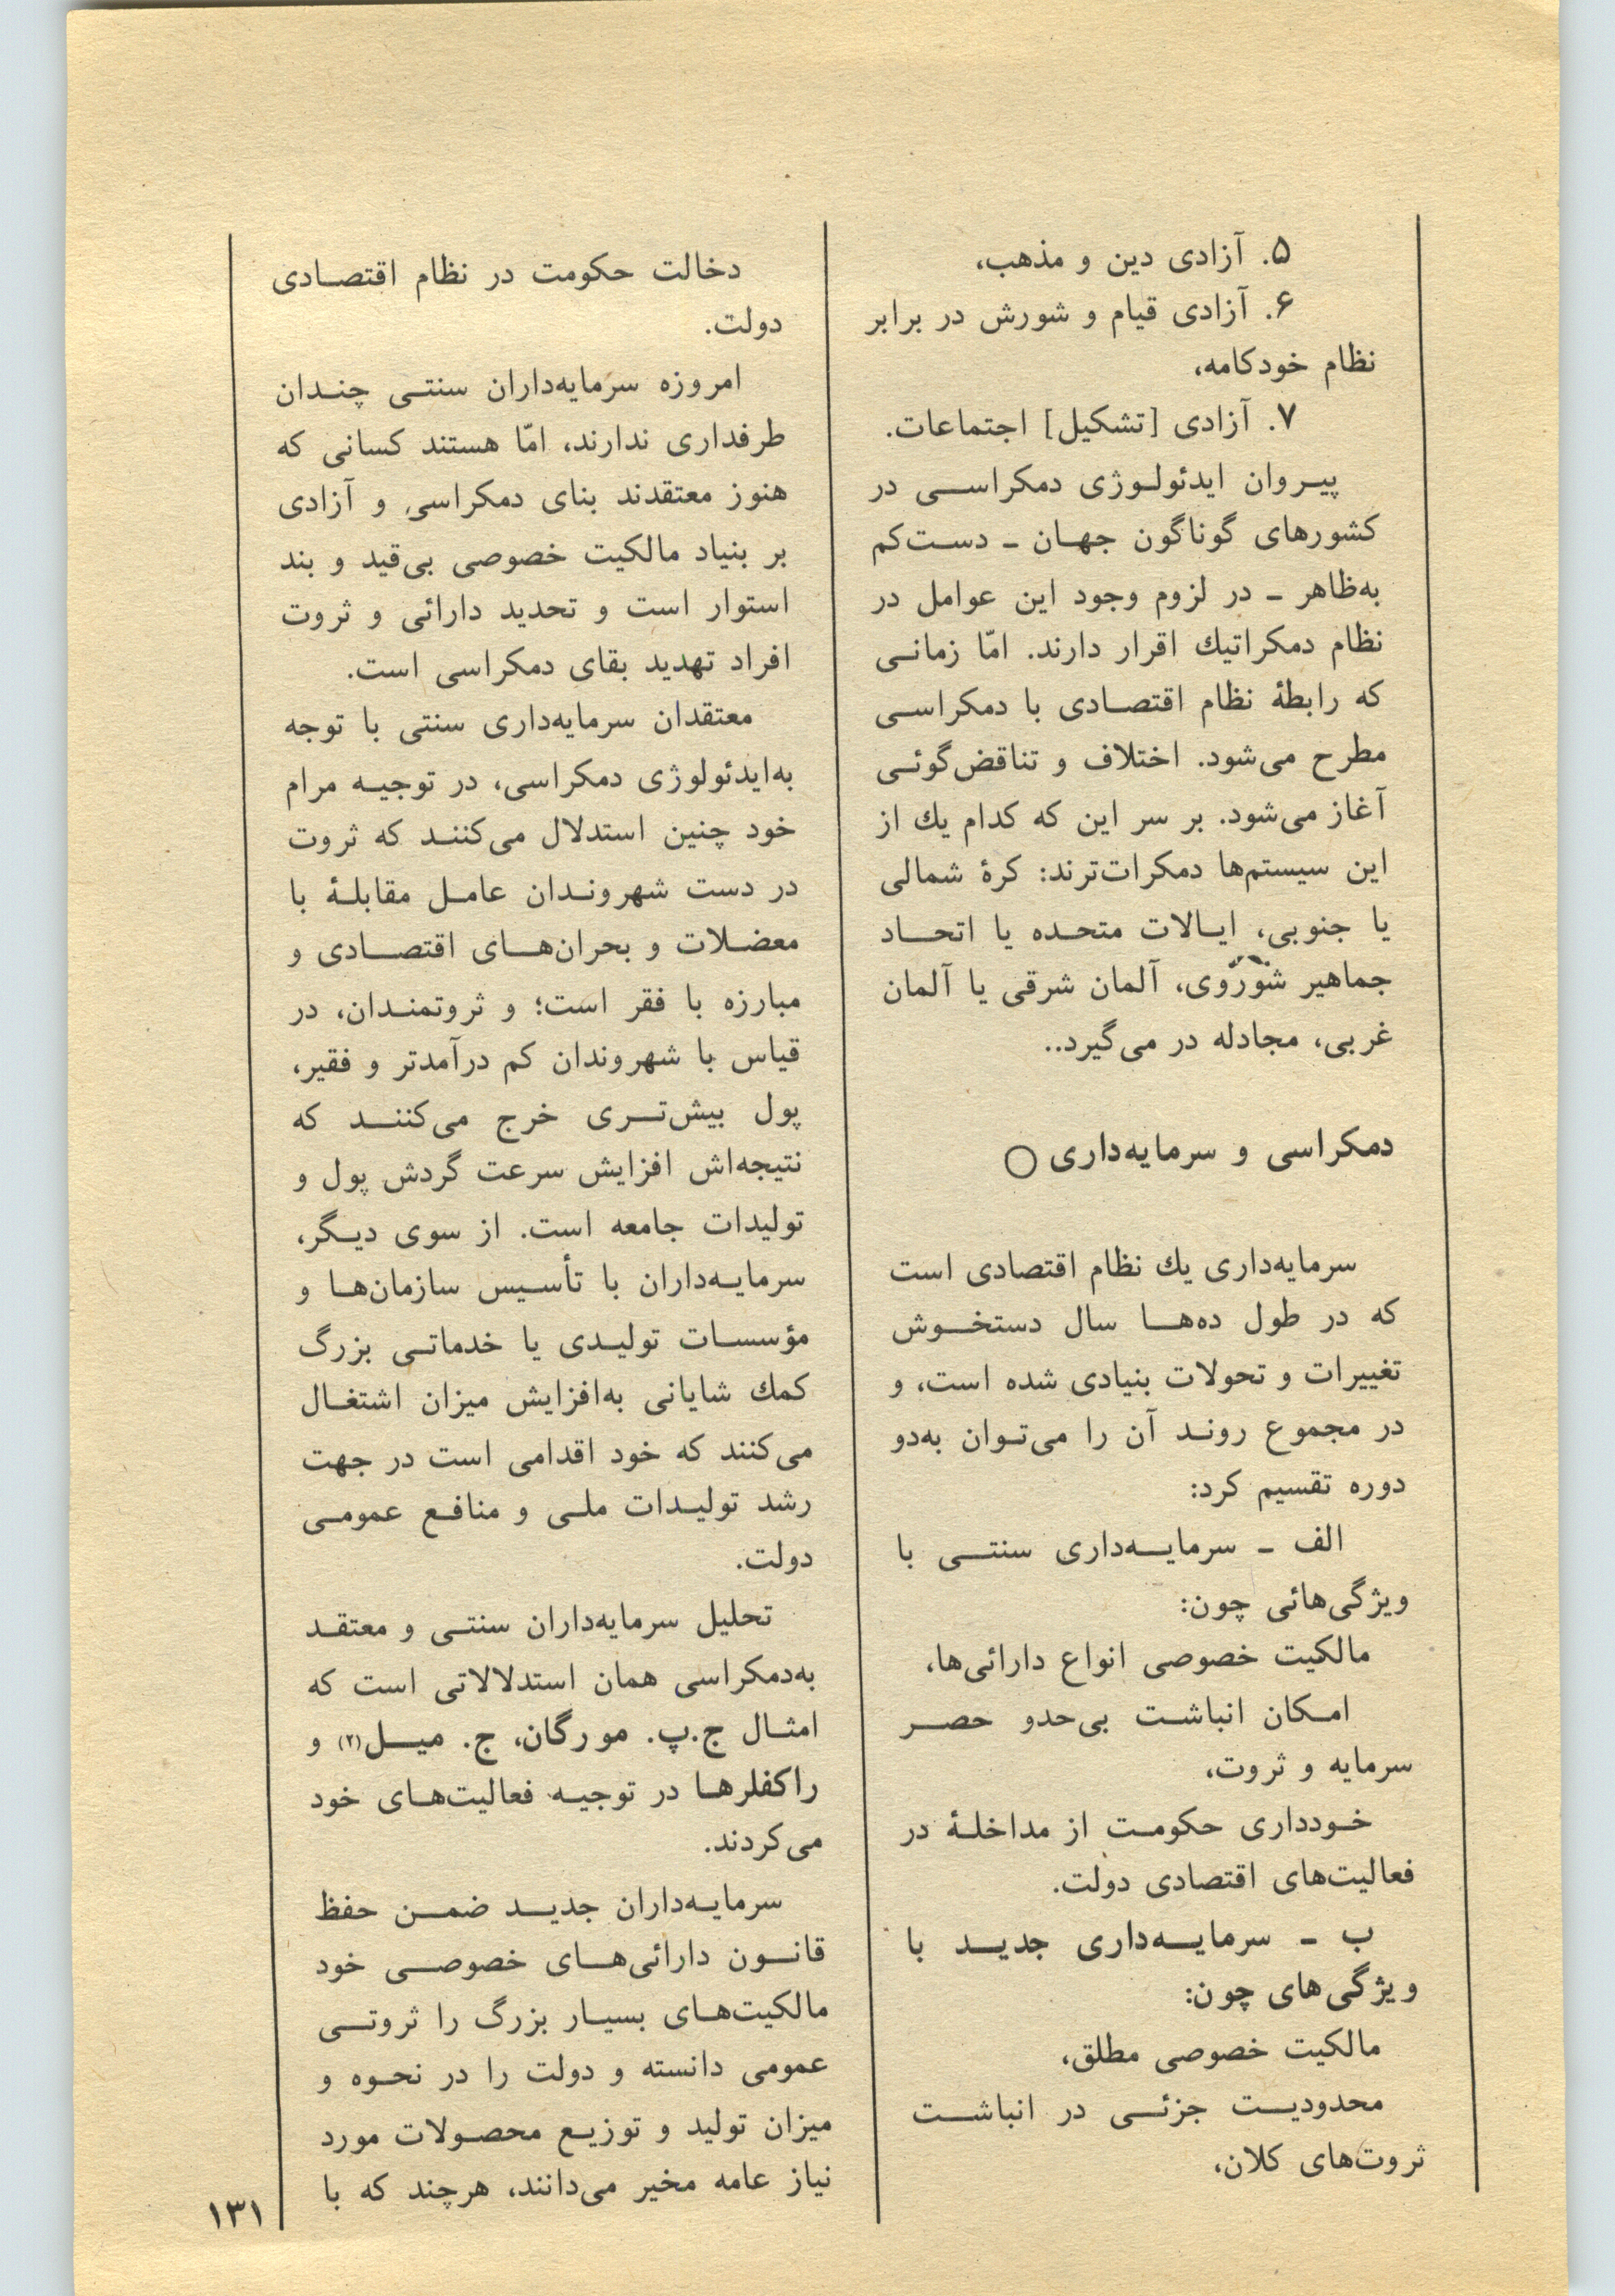 ۵. آزادی دین و مذهب،
۶. آزادی قیام و شورش در برابر
نظام خودکامه،
۷. آزادی [تشکیل] اجتماعات.
پیـروان ایدئولـوژی دمکراسـی در
کشورهای گوناگون جهـان ـ دسـت‌کم
به‌ظاهر ـ در لزوم وجود این عوامل در
نظام دمکراتیك اقرار دارند. امّا زمانـی
که رابطهٔ نظام اقتصـادی با دمکراسـی
مطرح می‌شود. اختلاف و تناقض‌گوئـی
آغاز می‌شود. بر سر این که کدام یك از
این سیستم‌ها دمکرات‌ترند: کرهٔ شمالی
یا جنوبی، ایـالات متحـده یا اتحـاد
جماهیر شوروی، آلمان شرقی یا آلمان
غربی، مجادله در می‌گیرد..
دمکراسی و سرمایه‌داری ○
سرمایه‌داری یك نظام اقتصادی است
که در طول ده‌هـا سال دستخـوش
تغییرات و تحولات بنیادی شده است، و
در مجموع رونـد آن را می‌تـوان به‌دو
دوره تقسیم کرد:
الف ـ سرمایـه‌داری سنتـی با
ویژگی‌هائی چون:
مالکیت خصوصی انواع دارائی‌ها،
امـکان انباشـت بی‌حدو حصـر
سرمایه و ثروت،
خـودداری حکومـت از مداخلـهٔ در
فعالیت‌های اقتصادی دولت.
ب ـ سرمایـه‌داری جدیـد با
ویژگی‌های چون:
مالکیت خصوصی مطلق،
محدودیـت جزئـی در انباشـت
ثروت‌های کلان،
دخالت حکومت در نظام اقتصـادی
دولت.
امروزه سرمایه‌داران سنتـی چنـدان
طرفداری ندارند، امّا هستند کسانی که
هنوز معتقدند بنای دمکراسی و آزادی
بر بنیاد مالکیت خصوصی بی‌قید و بند
استوار است و تحدید دارائی و ثروت
افراد تهدید بقای دمکراسی است.
معتقدان سرمایه‌داری سنتی با توجه
به‌ایدئولوژی دمکراسی، در توجیـه مرام
خود چنین استدلال می‌کننـد که ثروت
در دست شهرونـدان عامـل مقابلـهٔ با
معضـلات و بحران‌هـای اقتصـادی و
مبارزه با فقر است؛ و ثروتمنـدان، در
قیاس با شهروندان کم درآمدتر و فقیر،
پول بیش‌تـری خرج می‌کننـد که
نتیجه‌اش افزایش سرعت گردش پول و
تولیدات جامعه است. از سوی دیـگر،
سرمایـه‌داران با تأسـیس سازمان‌هـا و
مؤسسـات تولیـدی یا خدماتـی بزرگ
کمك شایانی به‌افزایش میزان اشتغـال
می‌کنند که خود اقدامی است در جهت
رشد تولیـدات ملـی و منافـع عمومـی
دولت.
تحلیل سرمایه‌داران سنتـی و معتقـد
به‌دمکراسی همان استدلالاتی است که
امثـال ج.پ. مورگان، ج. میـل(۲) و
راکفلرهـا در توجیـه فعالیت‌هـای خود
می‌کردند.
سرمایـه‌داران جدیـد ضمـن حفظ
قانـون دارائی‌هـای خصوصـی خود
مالکیت‌هـای بسیـار بزرگ را ثروتـی
عمومی دانسته و دولت را در نحـوه و
میزان تولید و توزیـع محصـولات مورد
نیاز عامه مخیر می‌دانند، هرچند که با
۱۳۱